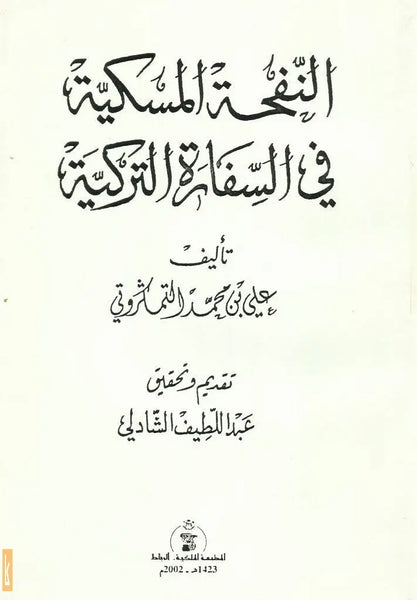 النّفحة المسكيّة
في السِّفارة التركيّة
تأليف
علي بن محمّد التمكروتي
تقديم وتحقيق
عبد اللّطيف الشّادلي
المطبعة الملكية، الرباط
1423هـ - 2002م